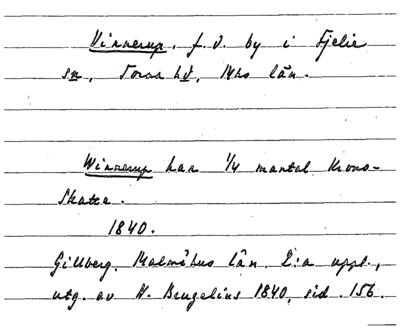 Vinnerup, f.d. by i Fjelie
sn, Torna hd, Mhs län.
Winnerup har 1/4 mantal Krono-
Skatte.
1840.
Gillberg. Malmöhus län. 2:a uppl.,
utg. av H. Bruzelius 1840, sid. 156.